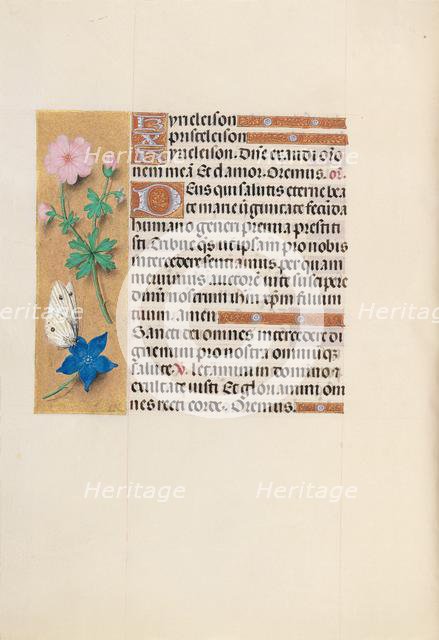 Kyrieleison
Xpristeleison
Kyrieleison. Dñe exaudi orõ
nem meã Et clamor. Oremus. or̃.
Deus qui salutis eterne bea
te marie v̾ginitate fecũda
humano generi premia prestiti
sti Tribue q̃s ut ipsam pro nobis
intercedere sentiamus per quam
meruimus auctorẽ vite suscipere
dominum nostrum ihm xpm filium
tuum. amen
Sancti dei omnes intercedere di
gnemini pro nostra omniũq̾
salute. V. Letamini in domino et
exultate iusti Et gloriamini om
nes recti corde. Oremus.
Heritage
Heritage
Heritage
Heritage
Heritage
Heritage